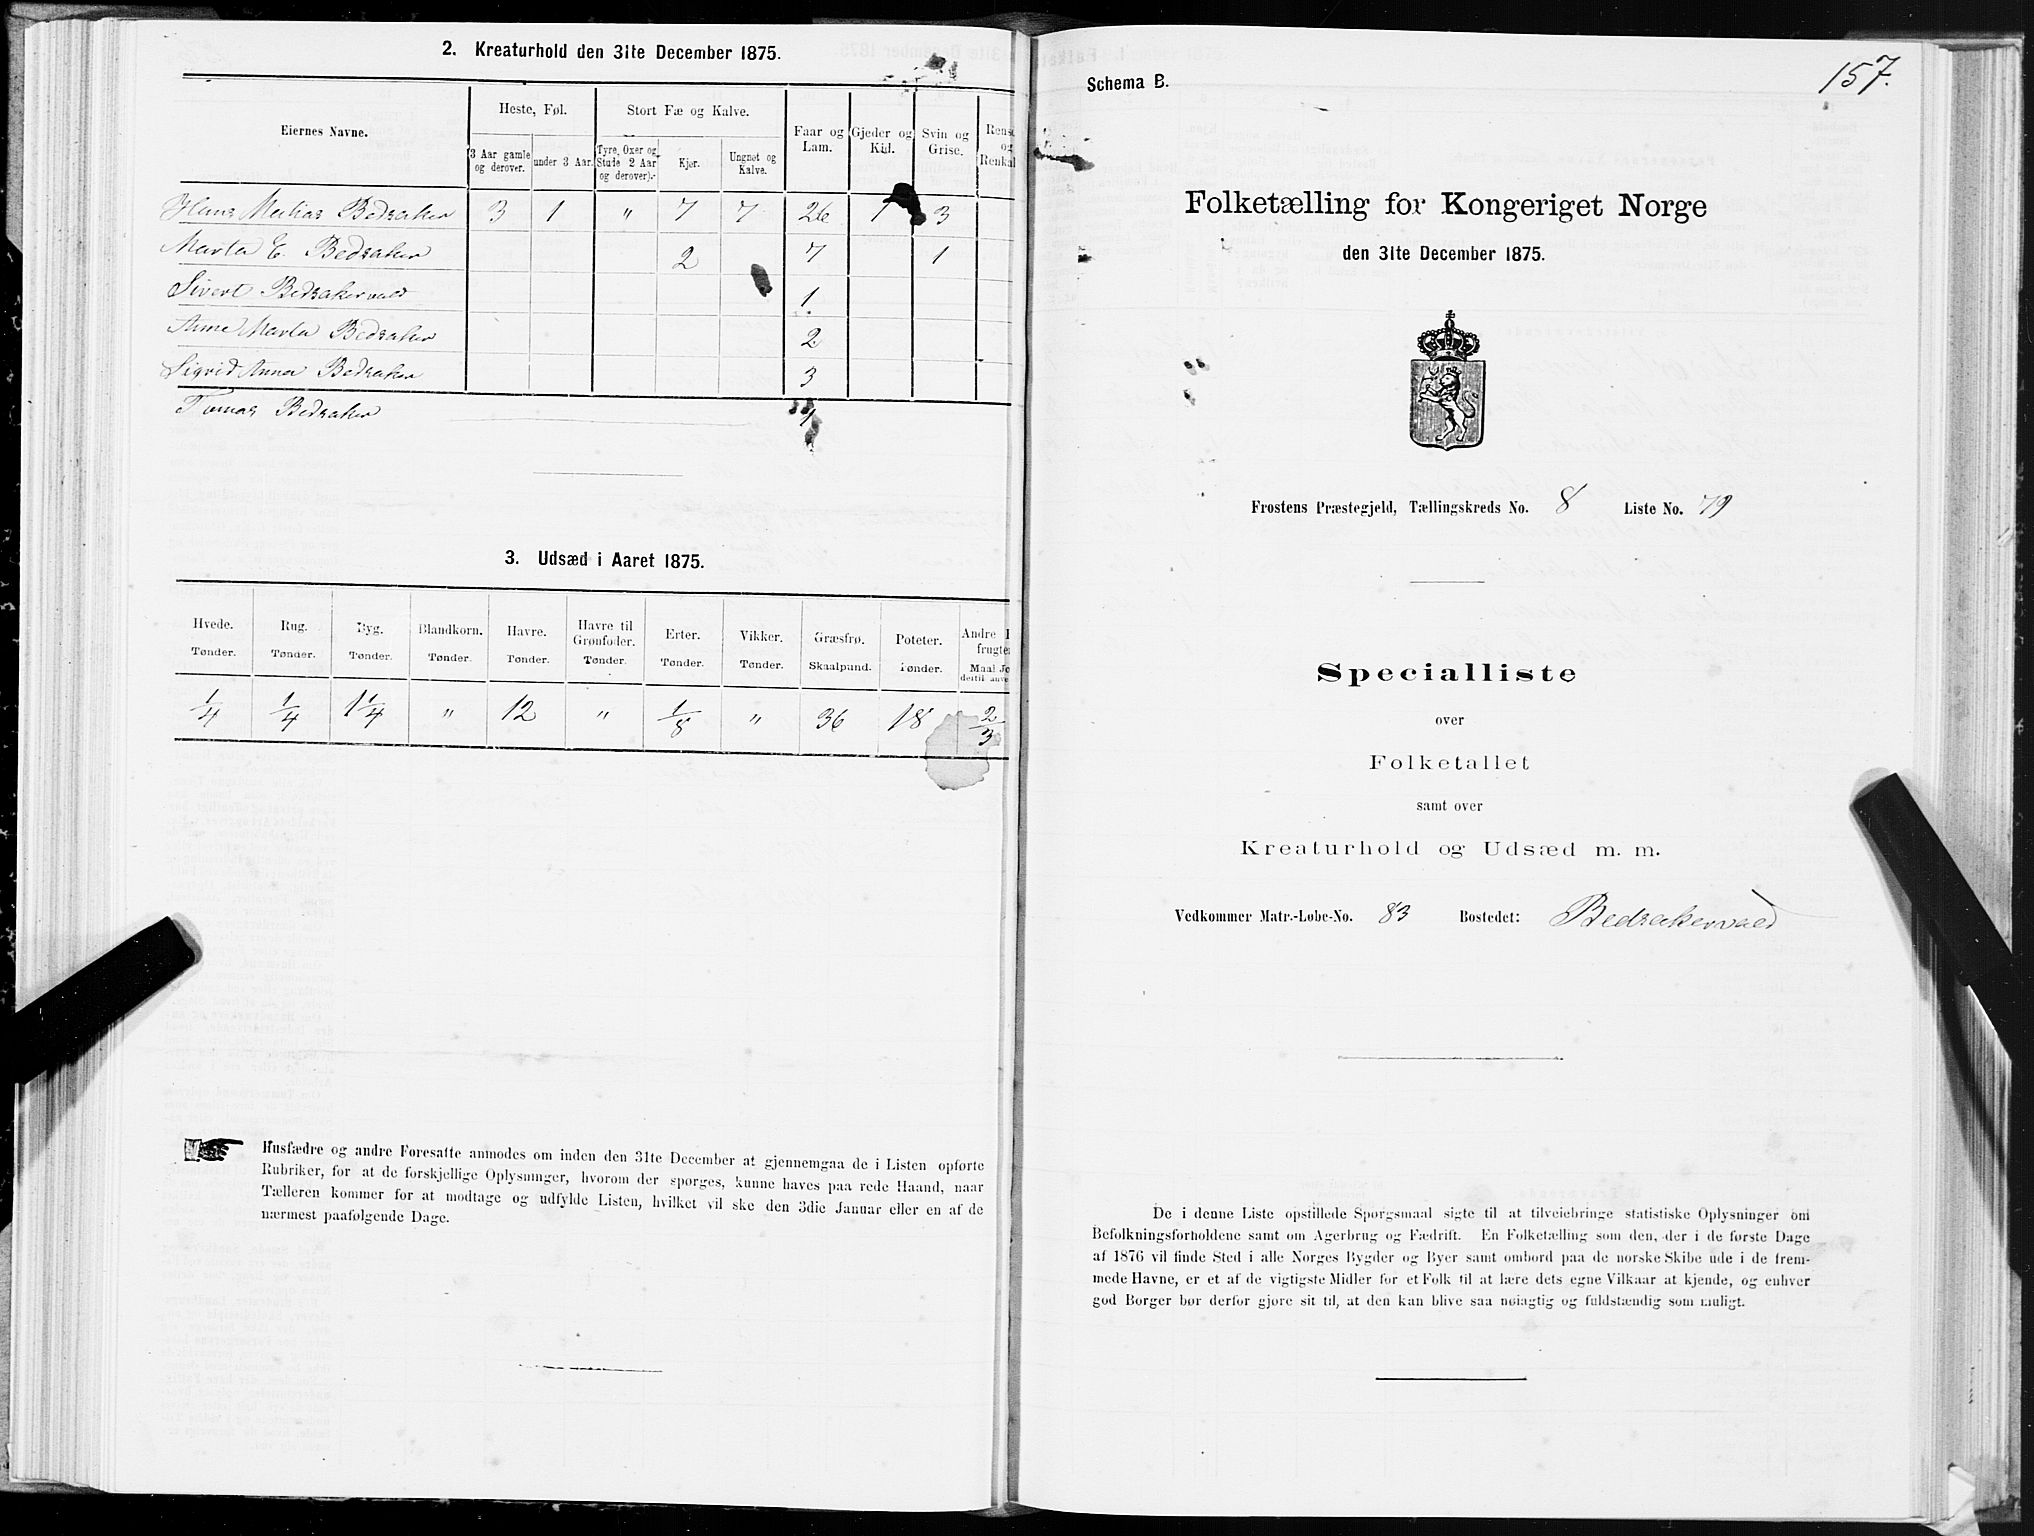 2. Kreaturhold den 31te December 1875.
Eiernes Navne.
Heste, Føl.
Stort Fæ og Kalve.
Faar og Lam.
Gjeder og Kid.
Svin og Grise.
3 Aar gamle og derover.
under 3 Aar.
Tyre, Oxer og Stude 2 Aar og derover).
Kjør.
Ungnøt og Kalve.
Hans Mathias Bedsaker 3 1 " 7 7 26 1 3
Marta E. Bedsaker 2 7 1
Sivert Bedsakervald 1
Anne Marta Bedsaker 2
Sigrid Anna Bedsaker 3
Tomas Bedsaker 1
3. Udsæd i Aaret 1875.
Hvede. Rug. Byg. Blandkorn. Havre. Havre til Grønfoder. Erter. Vikker. Græsfrø. Poteter. Andre
Tønder. Tønder. Tønder. Tønder. Tønder. Tønder. Tønder. Tønder. Skaalpund. Tønder. Maal
1/4 1/4 1 1/4 " 12 " 1/8 " 36 18 2/3
Husfædre og andre Foresatte anmodes om inden den 31te December at gjennemgaa de i Listen opførte
Rubriker, for at de forskjellige Oplysninger, hvorom der spørges, kunne haves paa rede Haand, naar
Tælleren kommer for at modtage og udfylde Listen, hvilket vil ske den 3die Januar eller en af de
nærmest paafølgende Dage.
157.
Schema B.
Folketælling for Kongeriget Norge
den 31te December 1875.
Frostens Præstegjeld, Tællingskreds No. 8 Liste No. 79
Specialliste
over
Folketallet
samt over
Kreaturhold og Udsæd m. m.
Vedkommer Matr.-Løbe-No. 83 Bostedet: Bedsakervald
De i denne Liste opstillede Spørgsmaal sigte til at tilveiebringe statistiske Oplysninger om
Befolkningsforholdene samt om Agerbrug og Fædrift. En Folketælling som den, der i de første Dage
af 1876 vil finde Sted i alle Norges Bygder og Byer samt ombord paa de norske Skibe ude i de frem-
mede Havne, er et af de vigtigste Midler for et Folk til at lære dets egne Vilkaar at kjende, og enhver
god Borger bør derfor gjøre sit til, at den kan blive saa nøiagtig og fuldstændig som muligt.